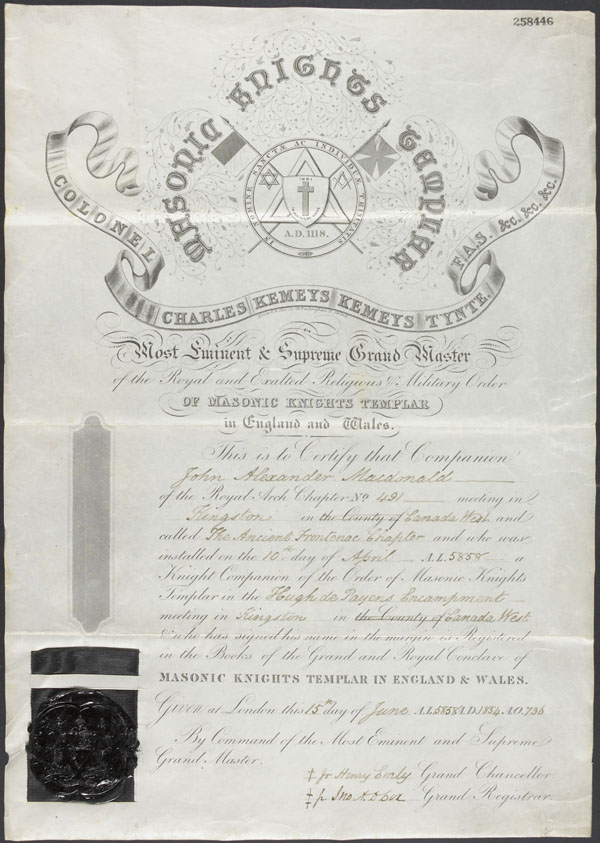 258446
MASONIC KNIGHTS TEMPLAR
IN NOMINE SANCTÆ AC INDIVIDUÆ TRINITATIS
INRI
A.D. 1118.
COLONEL
CHARLES KEMEYS KEMEYS TYNTE.
F.A.S. &c. &c. &c.
Most Eminent & Supreme Grand Master
of the Royal and Exalted Religious & Military Order
OF MASONIC KNIGHTS TEMPLAR
in England and Wales.
This is to Certify that Companion
John Alexander Macdonald
of the Royal Arch Chapter No 491 meeting in
Kingston in the County of Canada West and
called The Ancient Frontenac Chapter and who was
installed on the 10th day of April A.L. 5858 a
Knight Companion of the Order of Masonic Knights
Templar in the Hugh de Payens Encampment
meeting in Kingston in the County of Canada West
& who has signed his name in the margin is Registered
in the Books of the Grand and Royal Conclave of
MASONIC KNIGHTS TEMPLAR IN ENGLAND & WALES.
Given at London this 15th day of June A.L. 5858 A.D. 1854 A.O. 736
By Command of the Most Eminent and Supreme
Grand Master.
Henry Emly Grand Chancellor
Jno Grand Registrar.